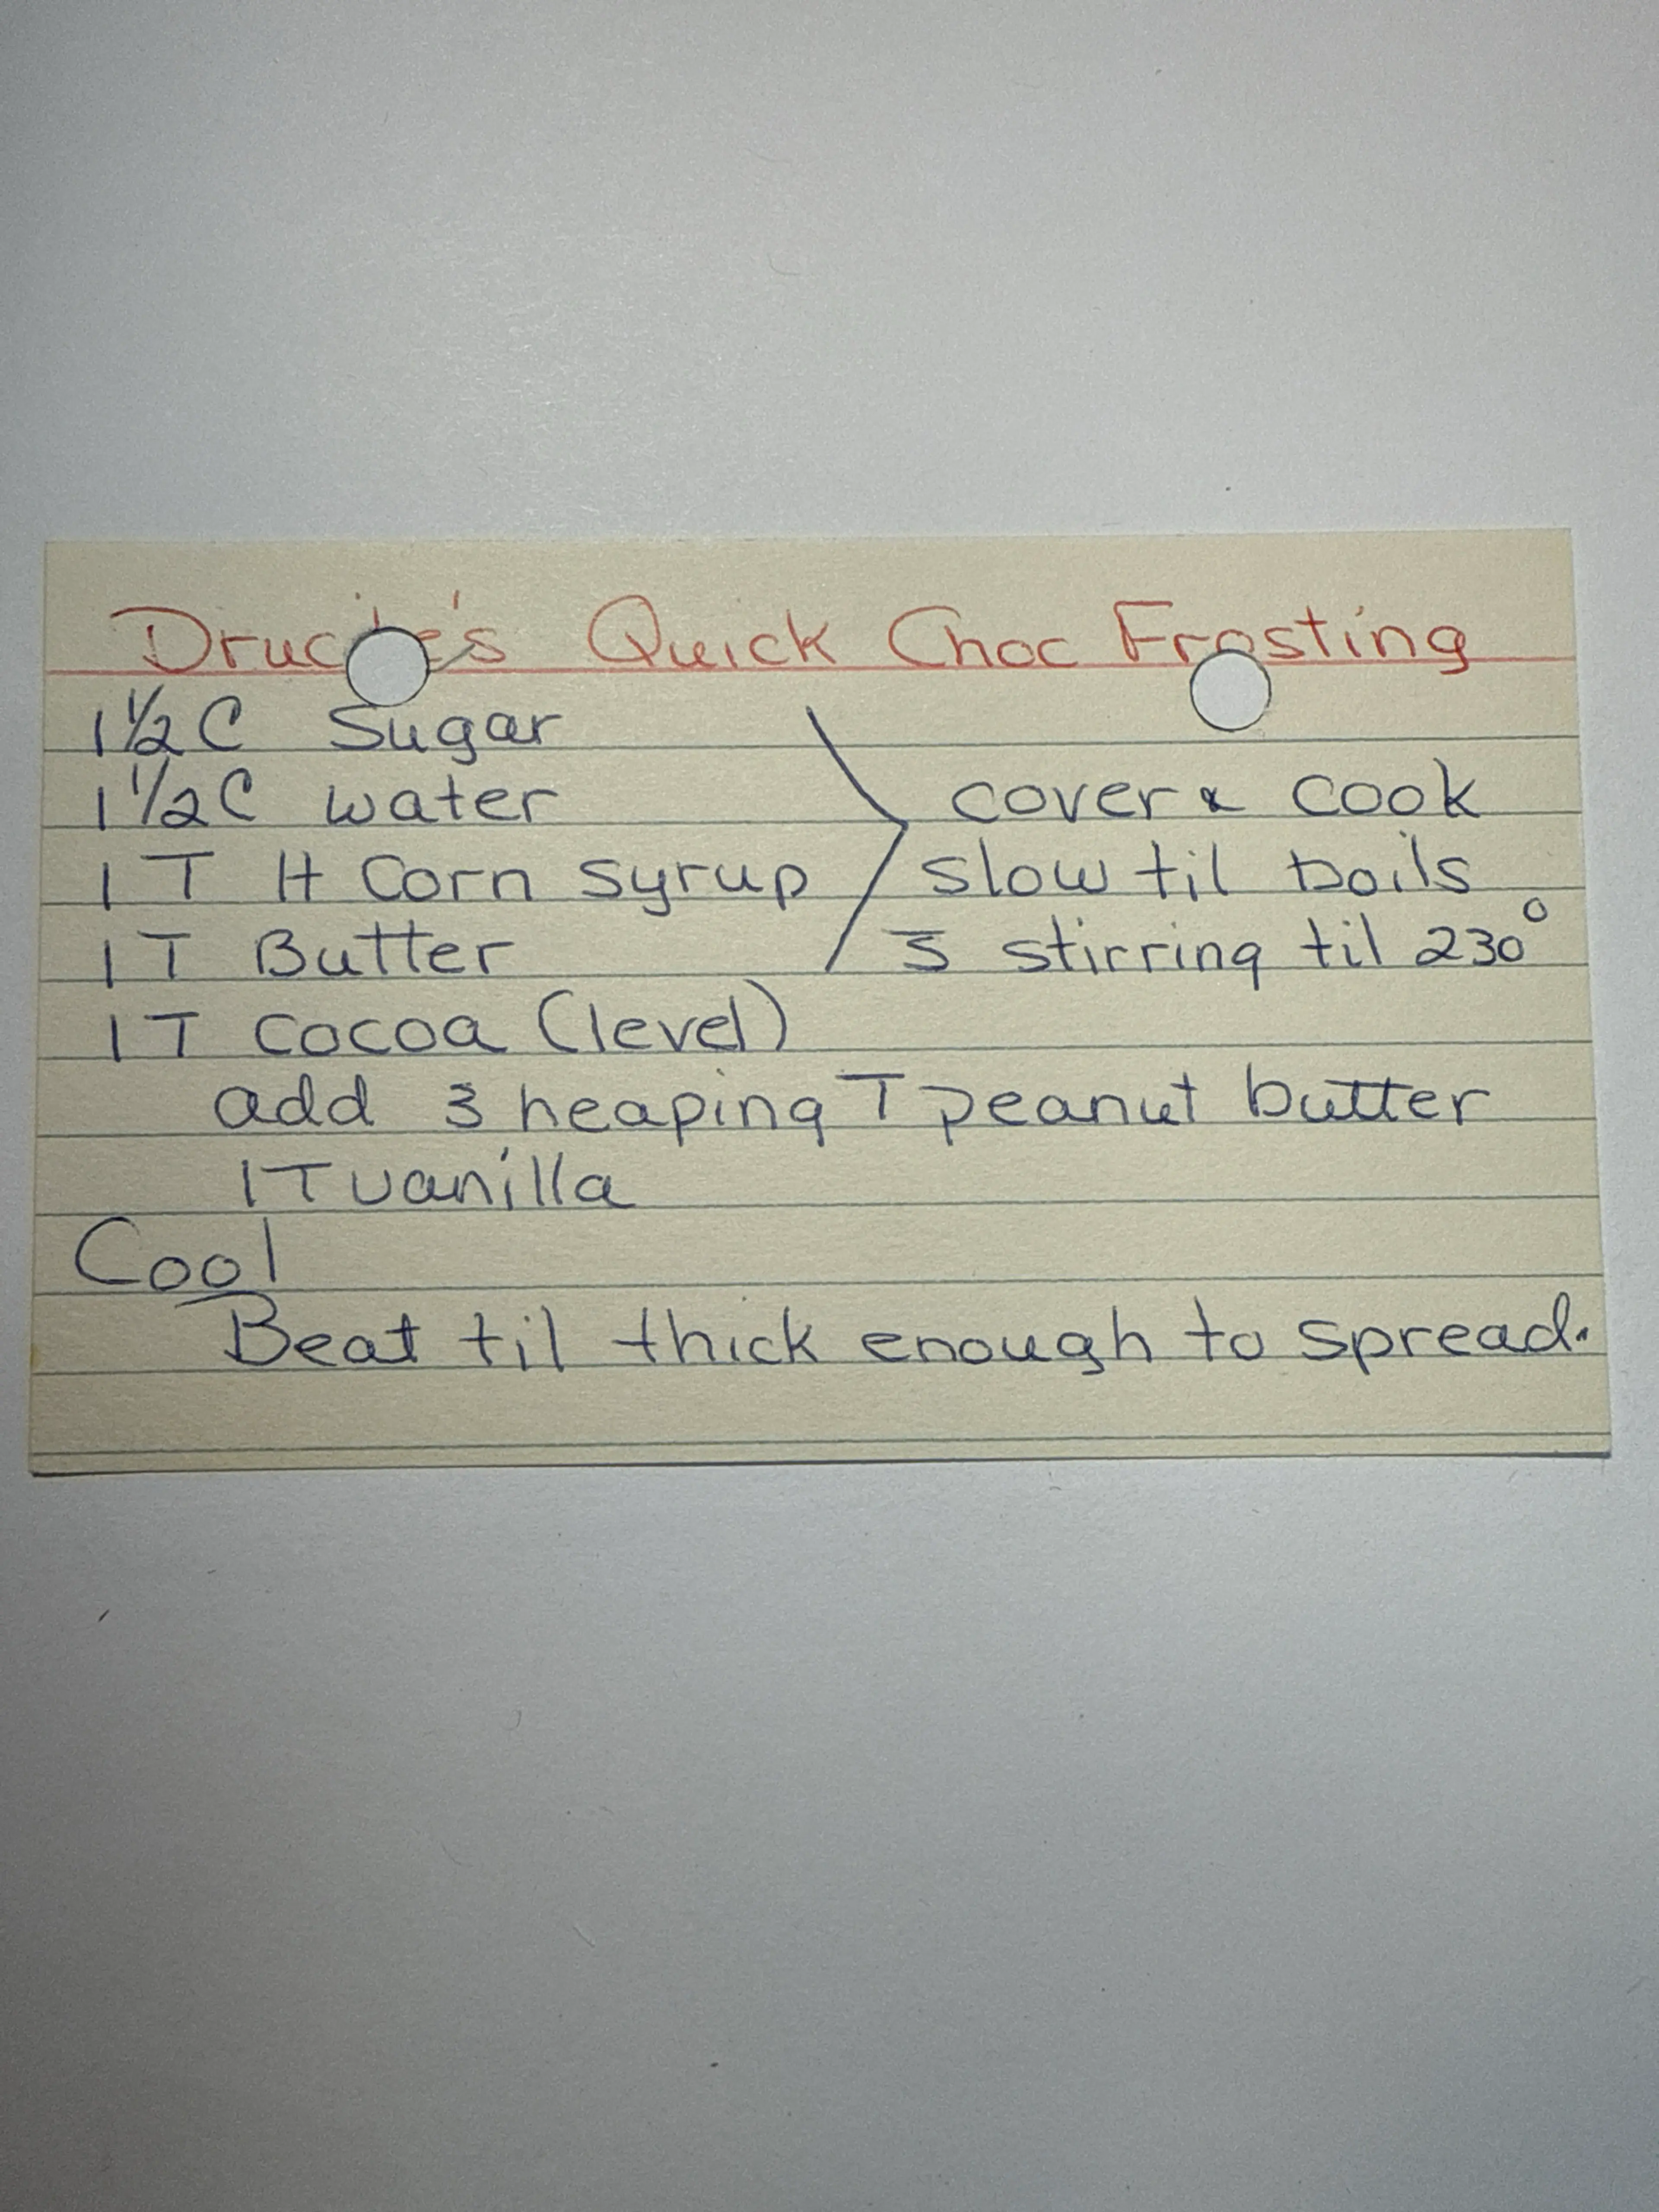 Quick Choc Frosting
1½ C Sugar
1½ C water
1 T H Corn syrup
1 T Butter
1 T cocoa (level)
cover & cook
slow til boils
s̄ stirring til 230°
add 3 heaping T peanut butter
1 T vanilla
Cool
Beat til thick enough to spread.